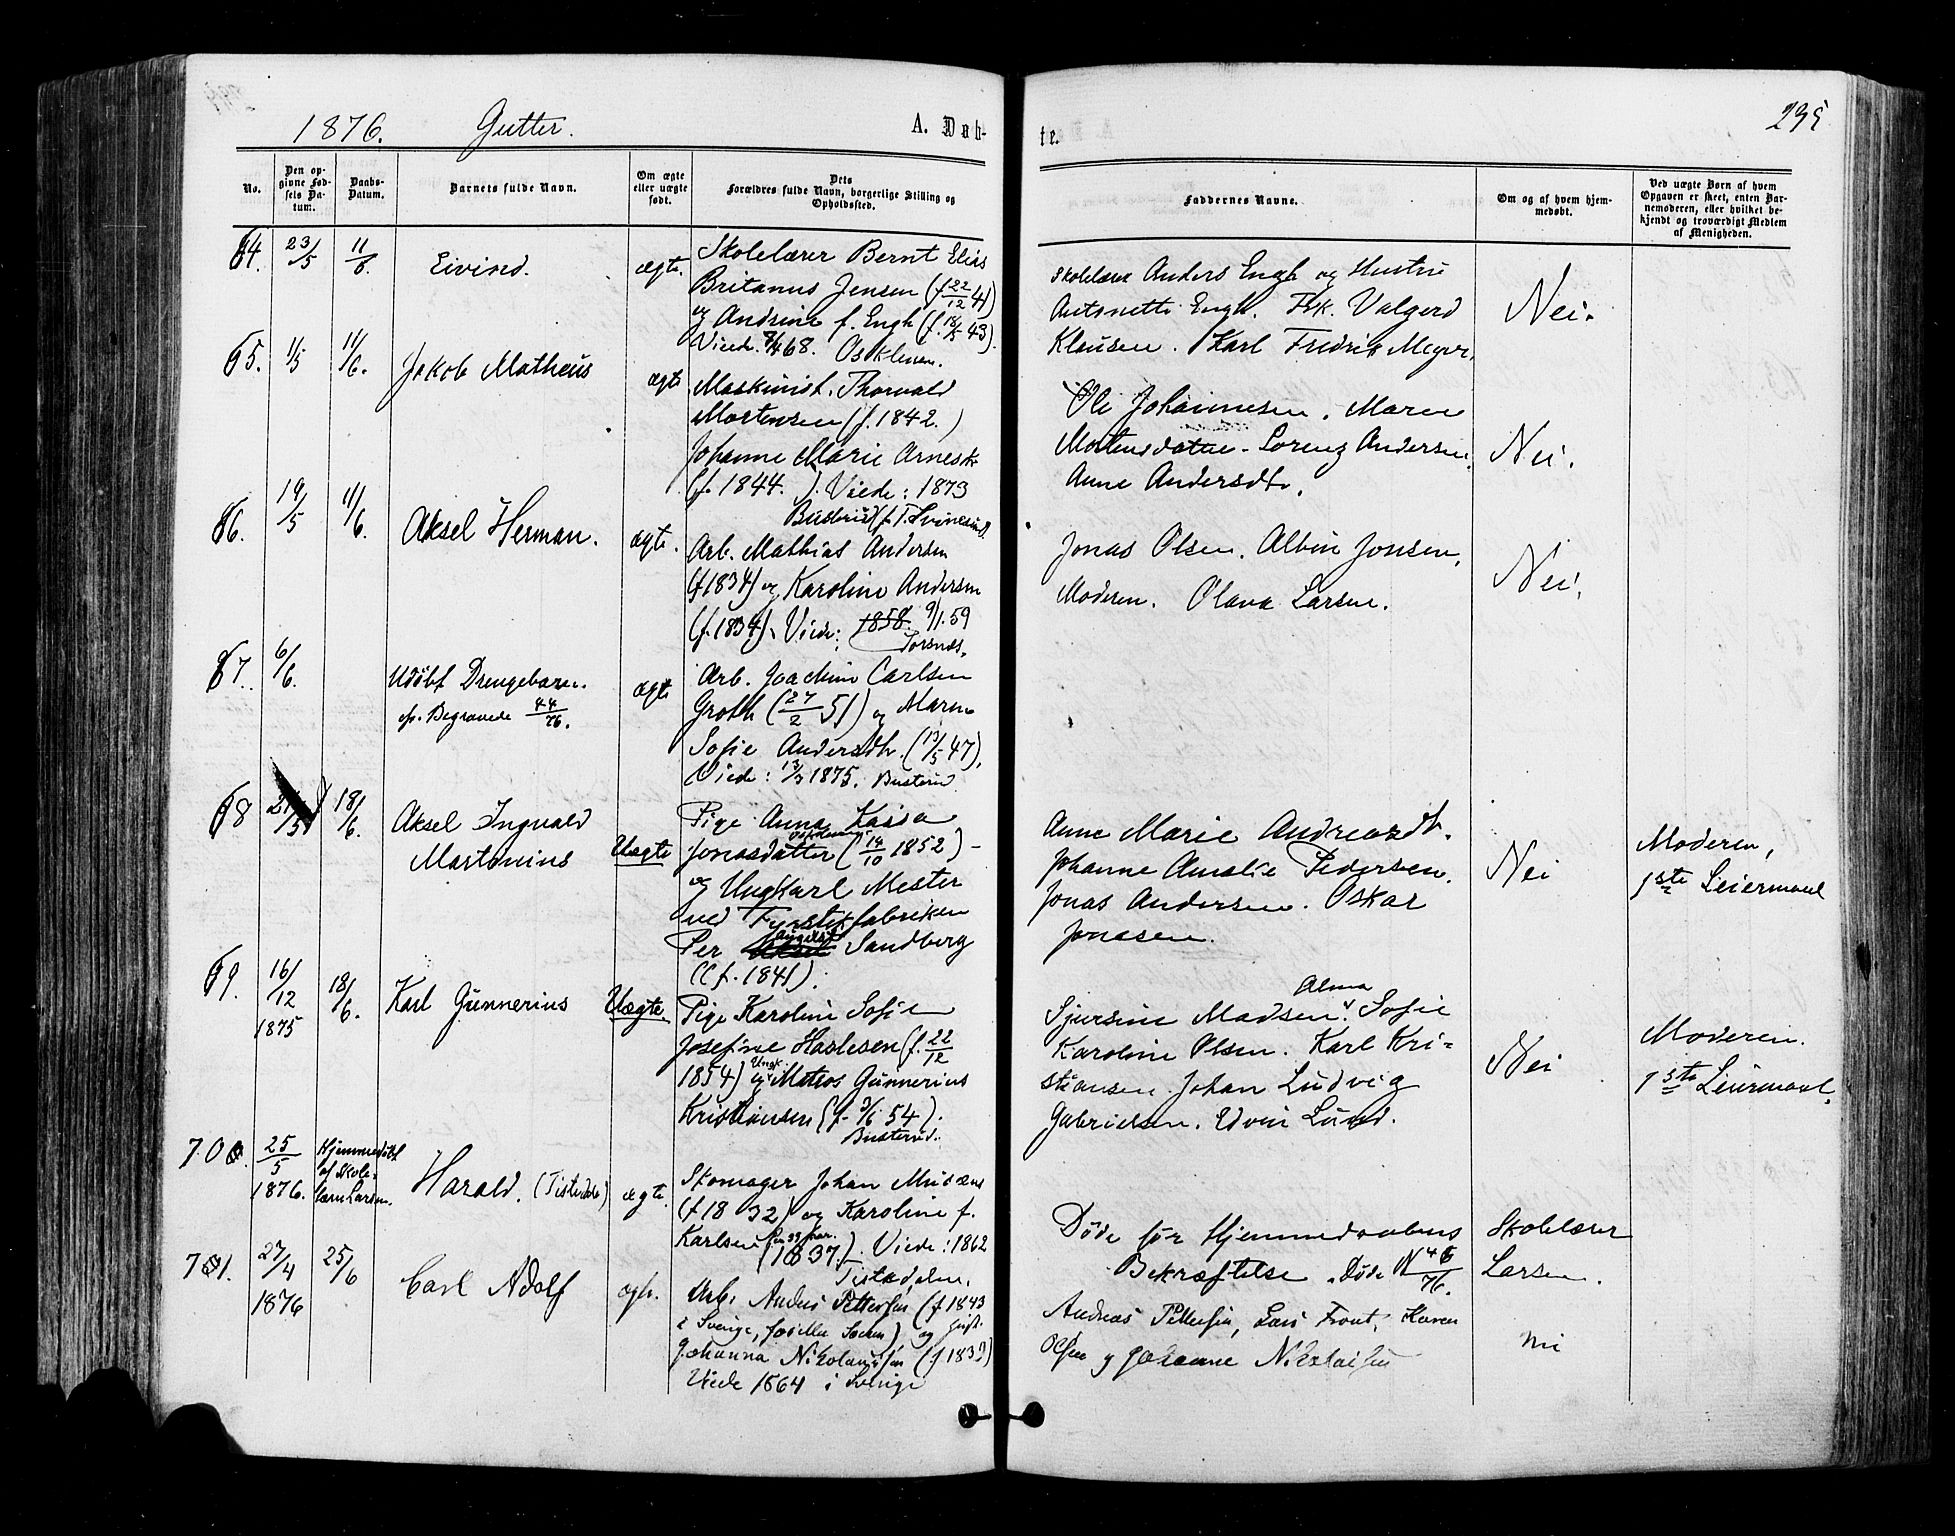 1876. Gutter. A. Døb-
te. 235
No.
Den op-
givne Fød-
sels Da-
tum.
Daabs-
Datum.
Barnets fulde Navn.
Om ægte
eller uægte
født.
Dets
Forældres fulde Navn, borgerlige Stilling og
Opholdssted.
Faddernes Navne.
Om og af hvem hjem-
medøbt.
Ved uægte Børn af hvem
Opgaven er skeet, enten Bar-
nemoderen, eller hvilket be-
kjendt og troværdigt Medlem
af Menigheden.
64. 23/5 11/6. Eivind. ægte.
Skolelærer Bernt Elias
Britanus Jensen (f 22/12 41)
og Andrine f. Engh (f. 18/5 43).
Viede 68.
Skolelærer Anders Engh og Hustru
Antonette Engh. Frk. Valgerd
Klausen. Karl Fredrik Meyer.
Nei.
65. 1/5 11/6. Jakob Matheus ægte
Maskinist. Thorvald
Mortensen (f. 1842.)
Johanne Marie Arnesdr
(f. 1844.). Viede: 1873
Ole Johannesen. Maren
Mortensdatter - Lorenz Andersen.
Anne Andersdtr.
Nei.
66. 19/5 11/6. Aksel Herman. ægte.
Arb. Mathias Andersen
(f 1834) og Karoline Andersen
(f. 1834). Viede: 1858. 9/1.59
Torsnæs.
Jonas Olsen. Albin Jonsen.
Moderen. Olava Larsen.
Nei.
67. 6/6. Udøbt Drengebarn.
cfr. Begravede 44/76.
ægte
Arb. Joachim Carlsen
Groth (27/2 51) og Maren
Sofie Andersdtr. (13/5 47),
Viede: 13/3 1875. Busterud.
68 21/5 18/6. Aksel Ingvald
Martonius
Uægte
Pige Anna Kaisa
Jonasdatter (14/10 1852) -
og Ungkarl Mester
ved Fyrstikfabriken
Per August Sandberg
(f. 1841).
Anne Marie Andreasdtr.
Johanne Amalie Pedersen.
Jonas Andersen. Oskar
Jonasen.
Nei
Moderen,
1ste Leiermaal
69. 16/12 1875 18/6. Karl Gunnerius Uægte.
Pige Karoline Sofie
Josefine Haslesen (f. 22/12
1854) og Ungk. Matros Gunnerius
Kristiansen (f. 3/6 54).
Busterud.
Alma
Sjursine Madsen. Sofie
Karoline Olsen. Karl Kri-
stiansen. Johan Ludvig
Gabrielsen. Edvin Lund.
Nei
Moderen.
1ste Leiermaal.
70. 25/5 1876. Hjemmedøbt
af Skole-
lærer Larsen.
Harald. (Tistedalen) ægte.
Skomager Johan Musæus
(f 1832) og Karoline f.
Karlsen (1837). Viede: 1862
Tistedalen.
Døde før Hjemmedaabens
Bekræftelse. Døde N 46/76.
Skolelærer
Larsen.
71. 27/4 1876 25/6 Carl Adolf ægte.
Arb. Anders Pettersen (f 1843
i Sverige, ) og
Johanna Nikolaisen (f 1833)
Viede 1864 i Sverige
Andreas Pettersen, Lars Front, Karen
Olsen og Johanne Nikolaisen
nei